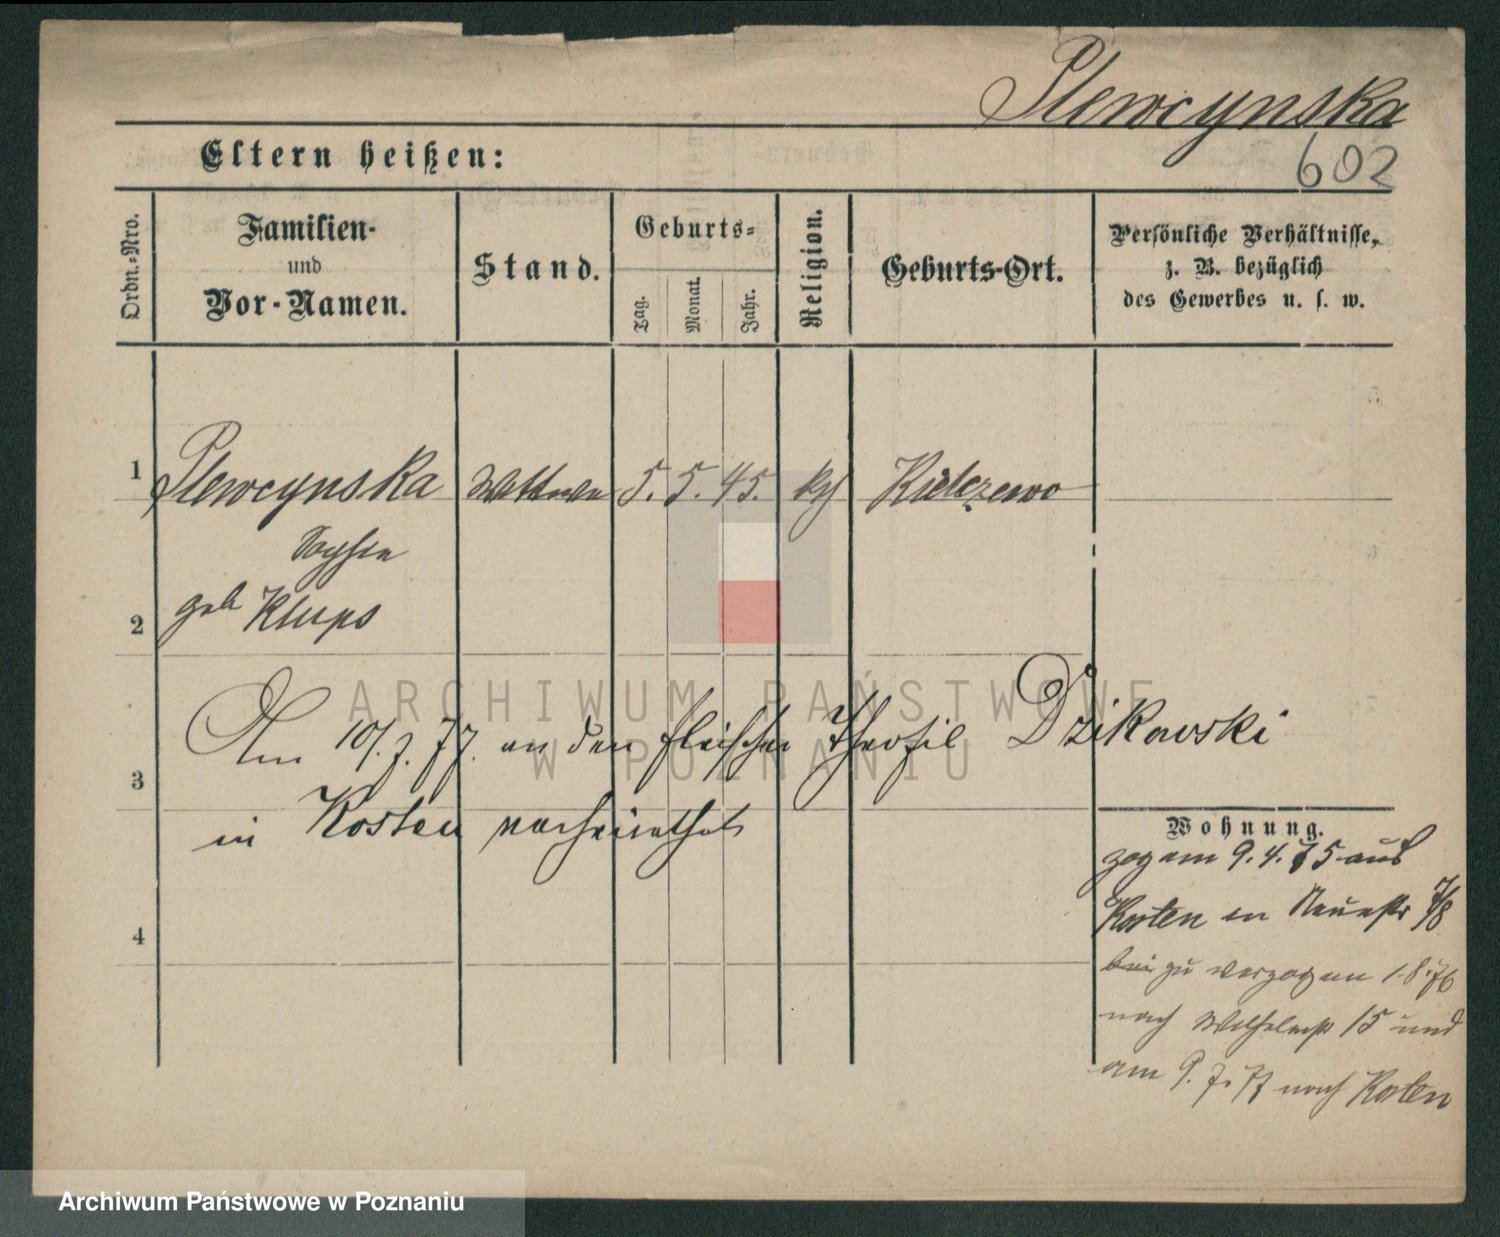 Plewcynska
602
Eltern heißen:
Ordn.-Nro.
Familien-
und
Vor-Namen.
Stand.
Geburts-
Tag.
Monat.
Jahr.
Religion.
Geburts-Ort.
Persönliche Verhältnisse,
z. B. bezüglich
des Gewerbes u. s. w.
1 Plewcynska Wittwe 5. 5. 45. Kielczewo
Sophie
geb Klups
2
ARCHIWUM PAŃSTWOWE
W POZNANIU
Am 10/7. 77. an den Fleischer Theofil Dzikowski
3
in Kosten verheirathet
Wohnung.
zog am 9. 4. 75 aus
Kosten in Neuestr 7/8
4
zu verzogen 1.8.76
nach Wilhelmstr 15 und
am 9. 7. 77 nach Kosten
Archiwum Państwowe w Poznaniu